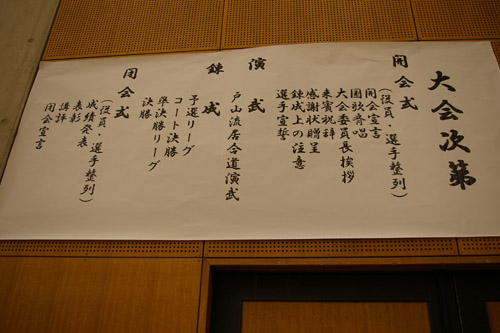 大会次第
開会式
(役員・選手整列)
開会宣言
国歌斉唱
大会委員長挨拶
来賓祝辞
感謝状贈呈
錬成上の注意
選手宣誓
演武
戸山流居合道演武
錬成
予選リーグ
コート決勝
準決勝リーグ
決勝
閉会式
(役員・選手整列)
成績発表
表彰
講評
閉会宣言